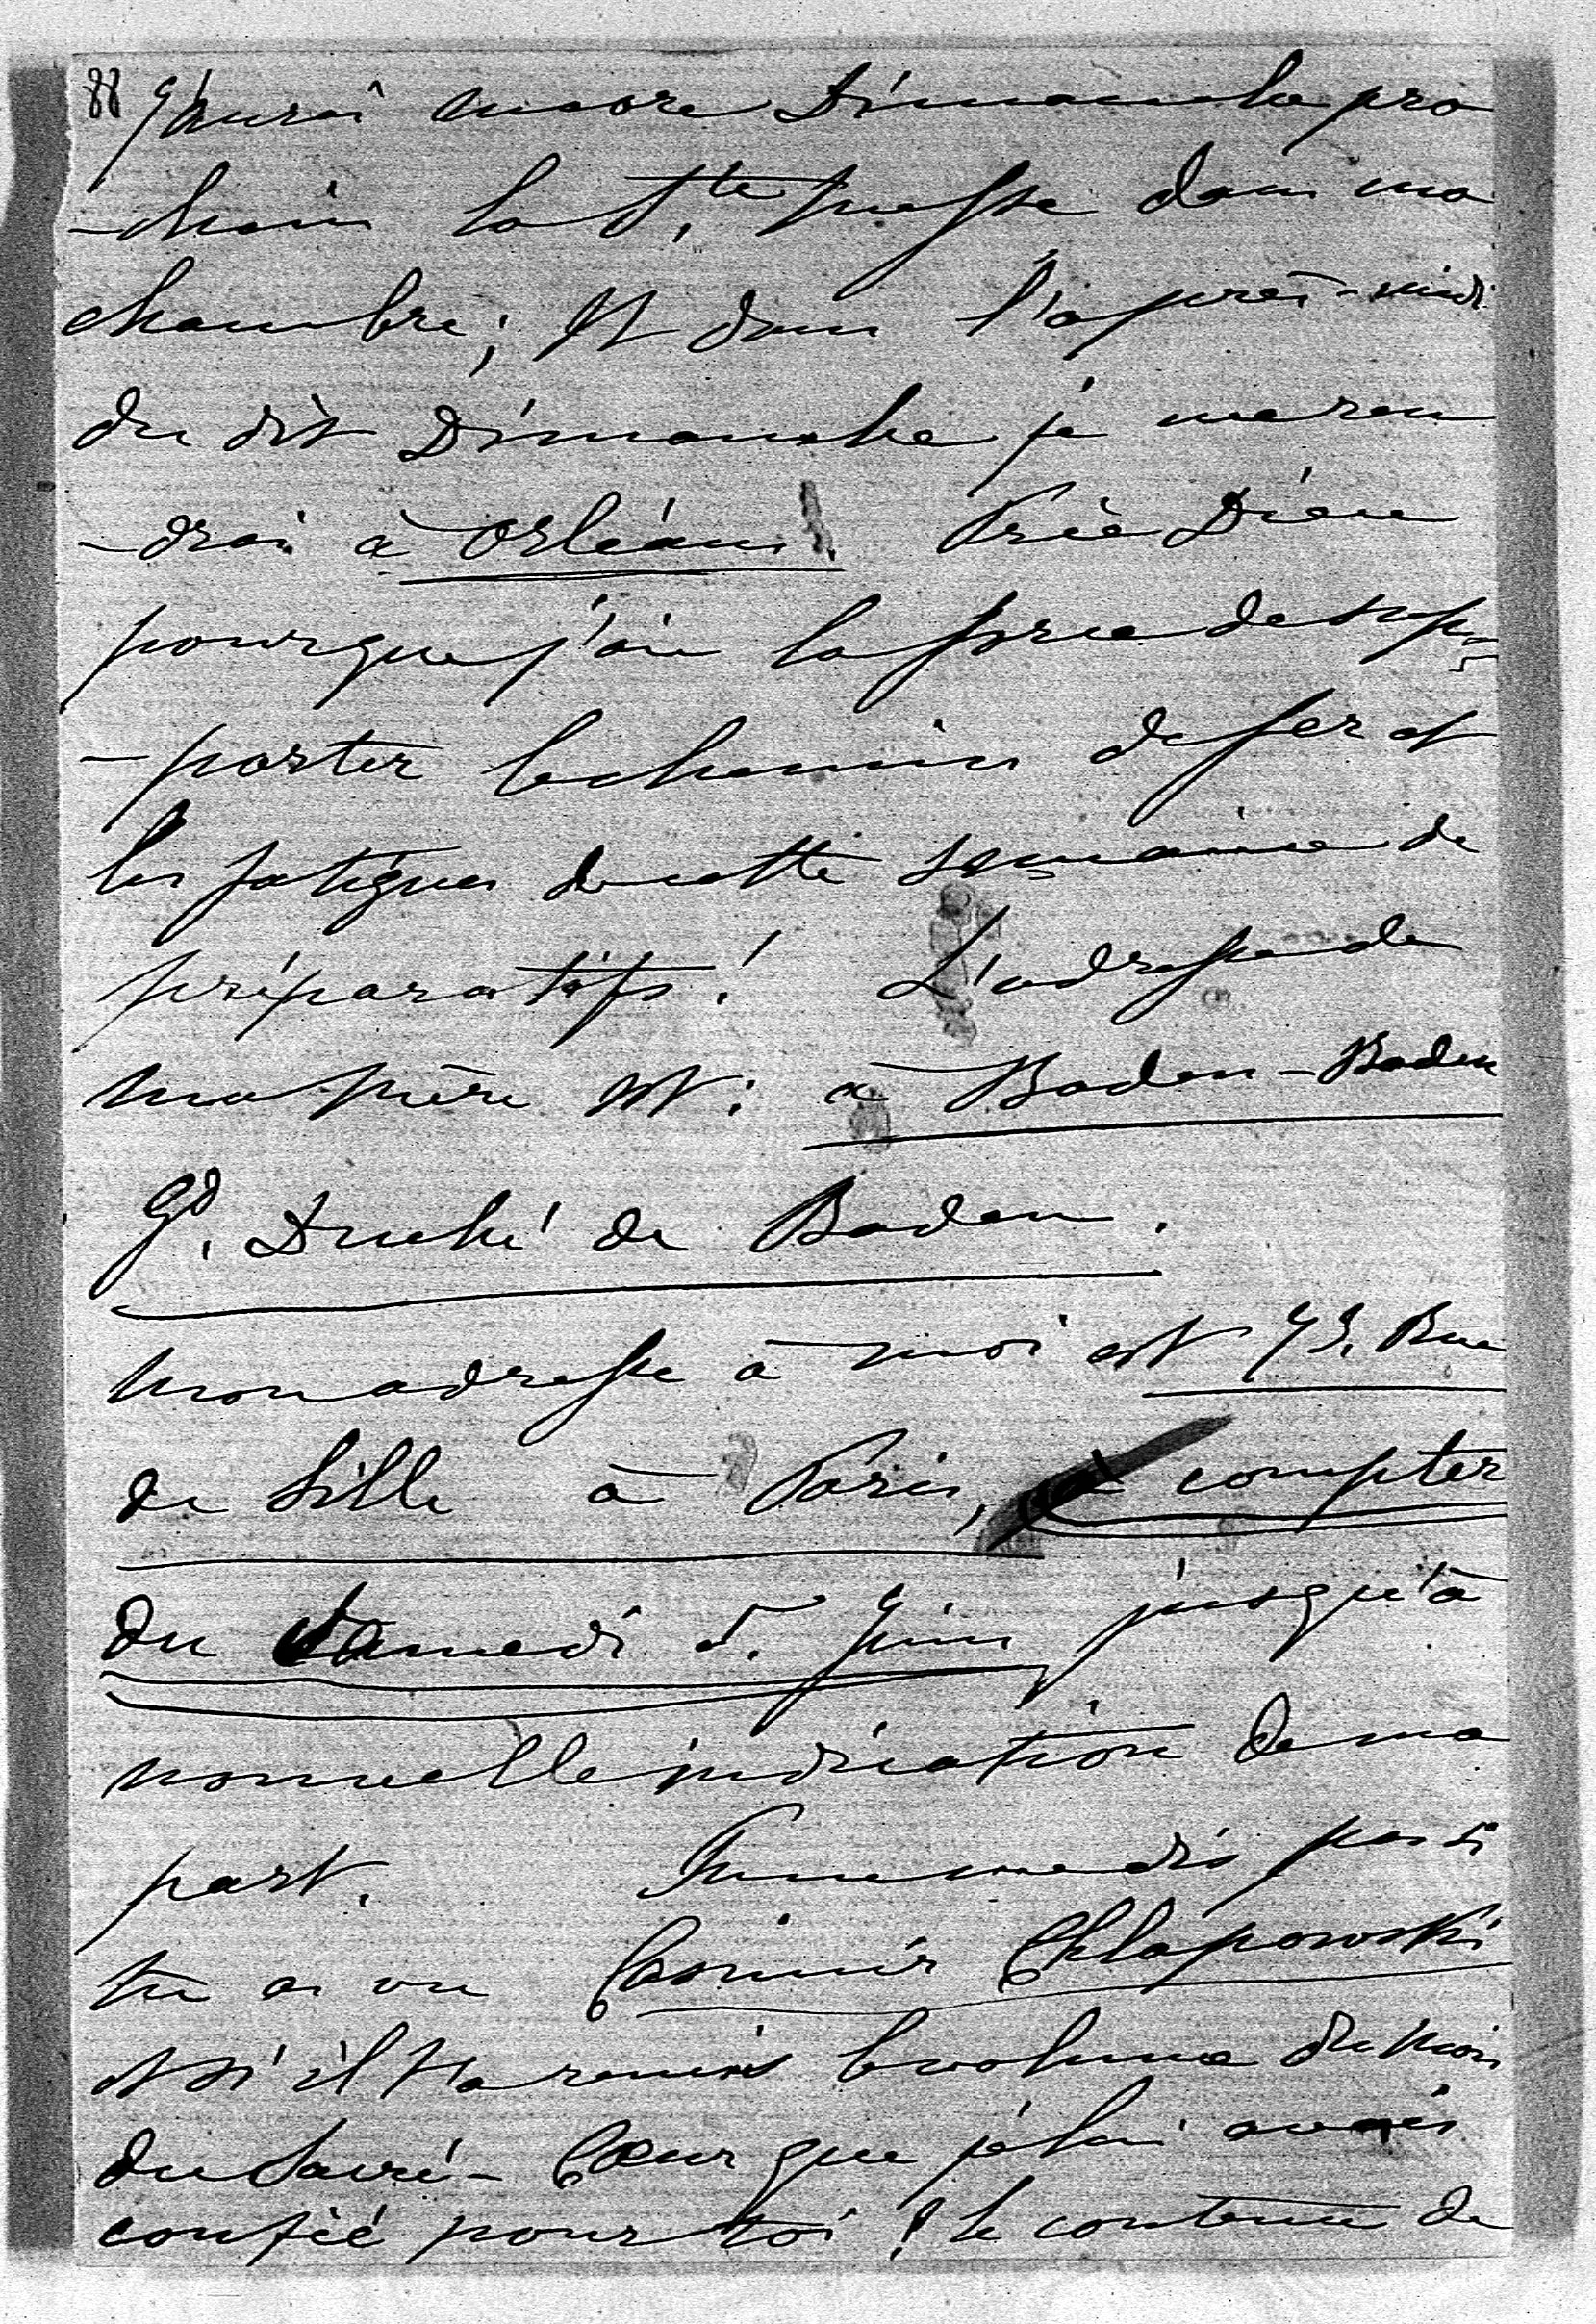 88 J'aurai encore Dimanche pro
-chain la Ste Messe dans ma
chambre; et dans l'après-midi
du dit Dimanche je me ren
-drai à Orléans. Prie Dieu
pour que j'aie la force de sup
-porter le chemin de fer et
les fatigues de cette semaine de
préparatifs! L'adresse de
ma mère est: à Baden-Baden
Gd. Duché de Baden.
Mon adresse à moi est 93, Rue
de Lille à Paris, à compter
du Samedi 5. Juin jusqu'à
nouvelle indication de ma
part. Tu ne me dis pas si
tu as vu Casimir Chlapowski
et s'il t'a remis le volume du mois
du Sacré-Cœur que je lui avais
confié pour toi! le contenu de